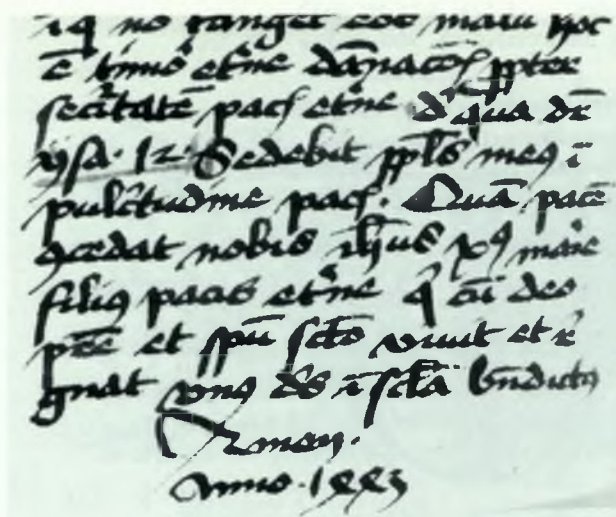 iq no tanget eos malū hoc
ē timō etne dānacōꝭ ꝓpter
securitatē pacꝭ etne d' qua dr
ysa. 12. Sedebit ppls meꝰ ī
pulctudine pacꝭ. Quā pacē
ꝯcedat nobis ihus xpꝰ marie
filiꝰ pacis etne q cū deo
pre et spu scto viuit et re
gnat vnꝰ ds ī scla bndictꝰ
Amen.
Anno.